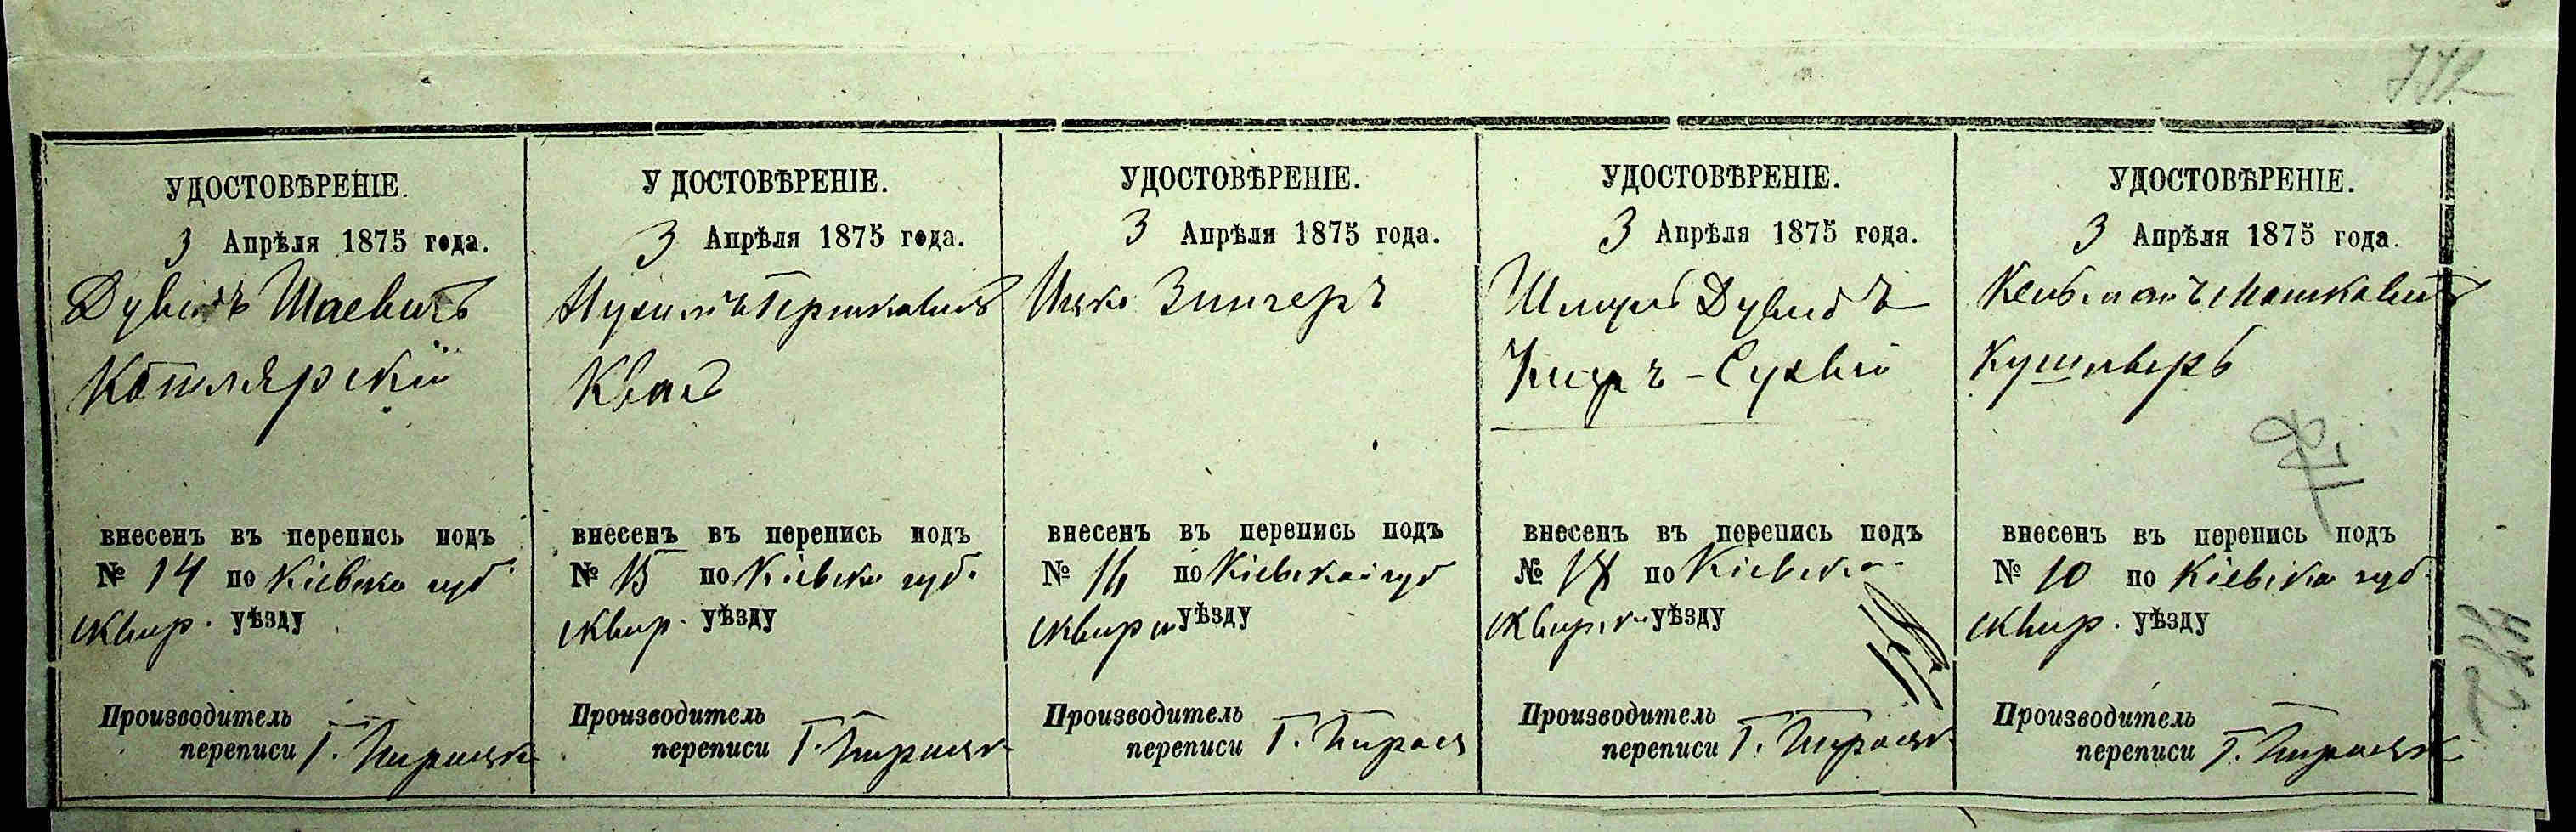 772
УДОСТОВѢРЕНІЕ.
3 Апрѣля 1875 года.
Дувидъ Шаевичъ
Котлярскій
внесенъ въ перепись подъ
№ 14 по Кіевско губ.
Сквир. уѣзду
Производитель
переписи Г.
УДОСТОВѢРЕНІЕ.
3 Апрѣля 1875 года.
Нухимъ Гершковичъ
Квас
внесенъ въ перепись подъ
№ 15 по Кіевско губ.
Сквир. уѣзду
Производитель
переписи Г.
УДОСТОВѢРЕНІЕ.
3 Апрѣля 1875 года.
Ицко Зингеръ
внесенъ въ перепись подъ
№ 16 по Кіевской губ
Сквир уѣзду
Производитель
переписи Г.
УДОСТОВѢРЕНІЕ.
3 Апрѣля 1875 года.
Шмуль Дувидъ
внесенъ въ перепись подъ
№ 17 по Кіевско
Сквирск уѣзду
Производитель
переписи Г.
УДОСТОВѢРЕНІЕ.
3 Апрѣля 1875 года.
Кельманъ Мошковичъ
Кушниръ
внесенъ въ перепись подъ
№ 10 по Кіевско губ.
Сквир. уѣзду
Производитель
переписи Г.